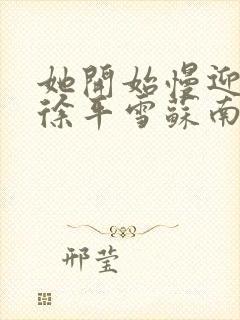 她開始慢迎
徐平雪蘇南
邢莹